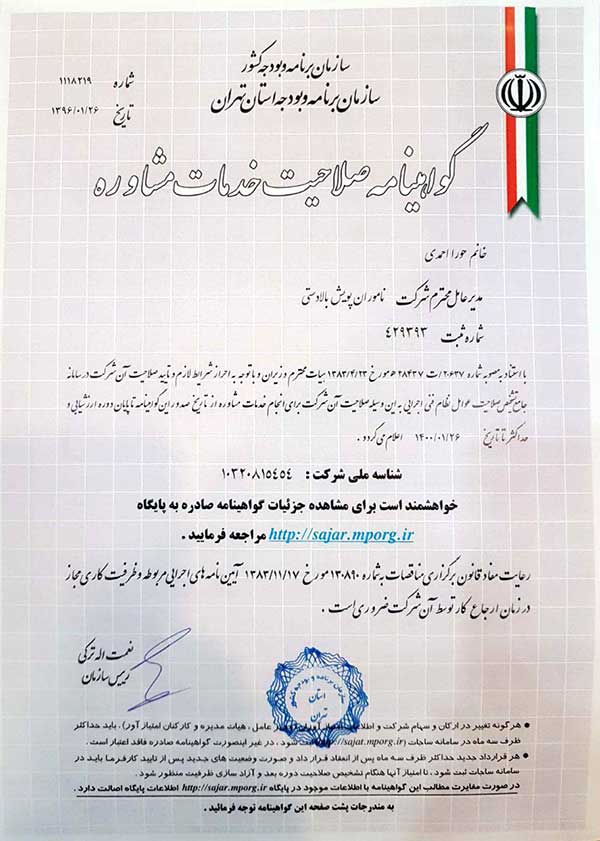 سازمان برنامه و بودجه کشور
سازمان برنامه و بودجه استان تهران
شماره ۱۱۱۸۲۱۹
تاریخ ۱۳۹۶/۰۱/۲۶
گواهینامه صلاحیت خدمات مشاوره
خانم حورا احمدی
مدیرعامل محترم شرکت ناموران پویش بالادستی
شماره ثبت ۴۲۹۳۹۳
با استناد به مصوبه شماره ۲۰۶۳۷/ت ۲۸۴۳۷ ه مورخ ۱۳۸۳/۴/۲۳ هیات محترم وزیران و با توجه به احراز شرایط لازم و تأیید صلاحیت آن شرکت در سامانه
جامع تشخیص صلاحیت عوامل نظام فنی اجرایی به این وسیله صلاحیت آن شرکت برای انجام خدمات مشاوره از تاریخ صدور این گواهینامه تا پایان دوره ارزشیابی و
حداکثر تا تاریخ ۱۴۰۰/۰۱/۲۶ اعلام می گردد .
شناسه ملی شرکت : ۱۰۳۲۰۸۱۵۴۵۴
خواهشمند است برای مشاهده جزئیات گواهینامه صادره به پایگاه
http://sajar.mporg.ir مراجعه فرمایید .
رعایت مفاد قانون برگزاری مناقصات به شماره ۱۳۰۸۹۰ مورخ ۱۳۸۳/۱۱/۱۷ آیین نامه های اجرایی مربوطه و ظرفیت کاری مجاز
در زمان ارجاع کار توسط آن شرکت ضروری است .
نعمت اله ترکی
رییس سازمان
سازمان برنامه و بودجه کشور
استان
تهران
● هر گونه تغییر در ارکان و سهام شرکت و اطلاعات عامل ، هیات مدیره و کارکنان امتیاز آور) ، باید حداکثر
ظرف سه ماه در سامانه ساجات (http://sajat.mporg.ir) ثبت شود ، در غیر اینصورت گواهینامه صادره فاقد اعتبار است .
● هر قرارداد جدید حداکثر ظرف سه ماه پس از انعقاد قرار داد و صورت وضعیت های جدید پس از تایید کارفرما باید در
سامانه ساجات ثبت شود ، تا امتیاز آنها هنگام تشخیص صلاحیت دوره بعد و آزاد سازی ظرفیت منظور شود .
در صورت مغایرت مطالب این گواهینامه با اطلاعات موجود در پایگاه http://sajar.mporg.ir اطلاعات پایگاه اصالت دارد .
به مندرجات پشت صفحه این گواهینامه توجه فرمائید .